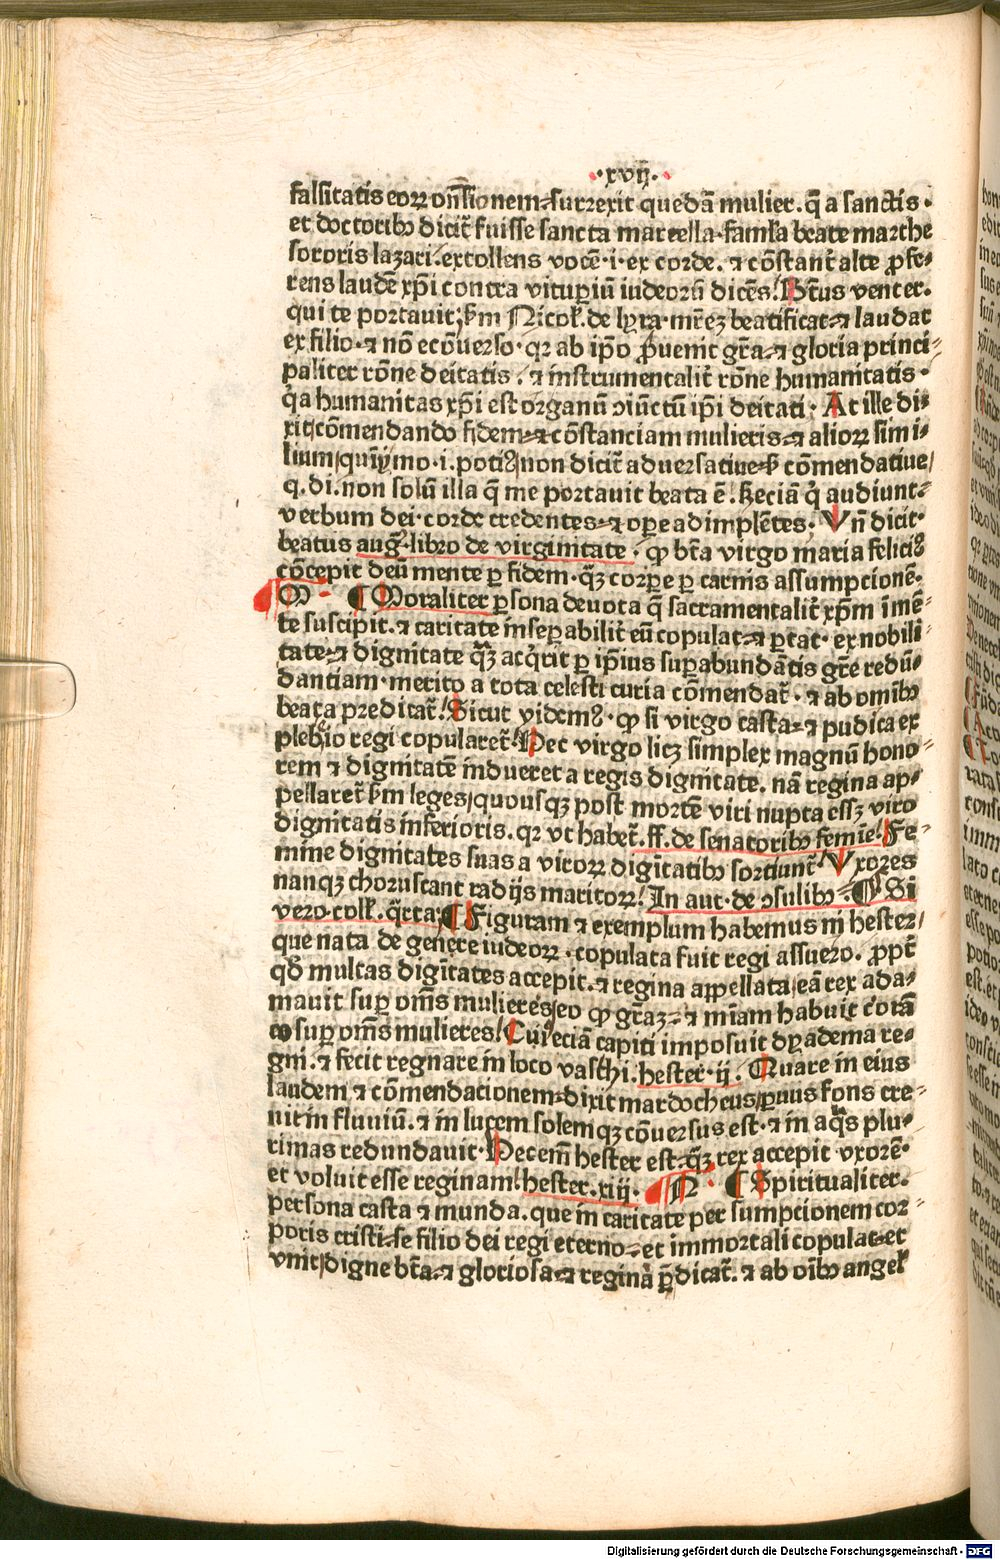 ·xvij·
falsitatis eoꝝ on̄sionem surrexit quedā mulier. q̄ a sanctis·
et doctoribꝰ dicit᷑ fuisse sancta marcella·famľa beate marthe
sororis lazari. extollens vocē·i·ex corde. ⁊ cōstant᷑ alte ꝓfe⸗
rens laudē xp̄i contra vituꝑiū iudeorū dicēs. Bt̄us venter.
qui te portauit, ẜm Nicoľ. de lyra·mr̄eꝫ beatificat ⁊ laudat
ex filio·⁊ nō ecōuerso·qꝛ ab ip̄o ꝓuenit gr̄a ⁊ gloria princi⸗
paliter rōne deitatis. ⁊ instrumentalit᷑ rōne humanitatis·
q̇a humanitas xp̄i est organū ꝯiūctū ip̄i deitati· At ille di⸗
xit cōmendando fidem ⁊ cōstanciam mulieris ⁊ alioꝝ simi⸗
lium quīymo·i·potiꝰ non dicit᷑ aduersatiue ẜ cōmendatiue
q. di. non solū illa q̄ me portauit beata ē. ẜ eciā q̇ audiunt
verbum dei·corde credentes ⁊ oꝑe adimplētes· Vn̄ dicit·
beatus aug᷑·libro de virginitate· ꝙ bt̄a virgo maria feliciꝰ
cōcepit deū mente ꝑ fidem·qꝫ corꝑe ꝑ carnis assumpcionē·
M ¶ Moraliter ꝑsona deuota q̄ sacramentalit᷑ xp̄m īmē⸗
te suscipit. ⁊ caritate inseꝑabilit᷑ eū copulat ⁊ ꝑtat· ex nobili⸗
tate ⁊ dignitate q̄ꝫ acq̇rit ꝑ ip̄ius suꝑabundātis gr̄e redū⸗
dantiam·merito a tota celesti curia cōmendat᷑· ⁊ ab omībꝰ
beata predicat᷑. Sicut videmꝰ·ꝙ si virgo casta ⁊ pudica ex
plebeio regi copularet᷑. Hec virgo licꝫ simplex magnū hono⸗
rem ⁊ dignitatē indueret a regis dignitate. nā regina ap⸗
pellaret᷑ ẜm leges quousqꝫ post mortē viri nupta essꝫ viro
dignitatis inferioris. qꝛ vt habet᷑. ff. de senatoribꝰ femīe. Fe⸗
mine dignitates suas a viroꝝ digītatibꝰ sortiunt᷑ Vxores
nanqꝫ choruscant radijs maritoꝝ. In aut·de ꝯsulibꝰ· ¶ Si
vero·coll᷑. q̇rta. ¶ Figuram ⁊ exemplum habemus in hester
que nata de genere iudeoꝝ·copulata fuit regi assuero. ꝓpt᷑
qd̄ multas digītates accepit. ⁊ regina appellata eā rex ada⸗
mauit suꝑ om̄s mulieres eo ꝙ gr̄aꝫ ⁊ mīam habuit corā
eo suꝑ om̄s mulieres. Cui eciā capiti imposuit dyadema re⸗
gni. ⁊ fecit regnare in loco vasthi. hester·ij. Quare in eius
laudem ⁊ cōmendacionem dixit mardocheus ꝑuus fons cre⸗
uit in fluuiū. ⁊ in lucem solemqꝫ cōuersus est·⁊ in aq̄s plu⸗
rimas redundauit· Hec em̄ hester est q̄ꝫ rex accepit vxorē·
et voluit esse reginam. hester.xiij. N ¶ Spiritualiter.
persona casta ⁊ munda. que in caritate per sumpcionem cor⸗
poris cristi se filio dei regi eterno et immortali copulat et
vnit digne bt̄a ⁊ gloriosa ⁊ regina p̄dicat᷑. ⁊ ab oībꝰ angel᷑
Digitalisierung gefördert durch die Deutsche Forschungsgemeinschaft - DFG